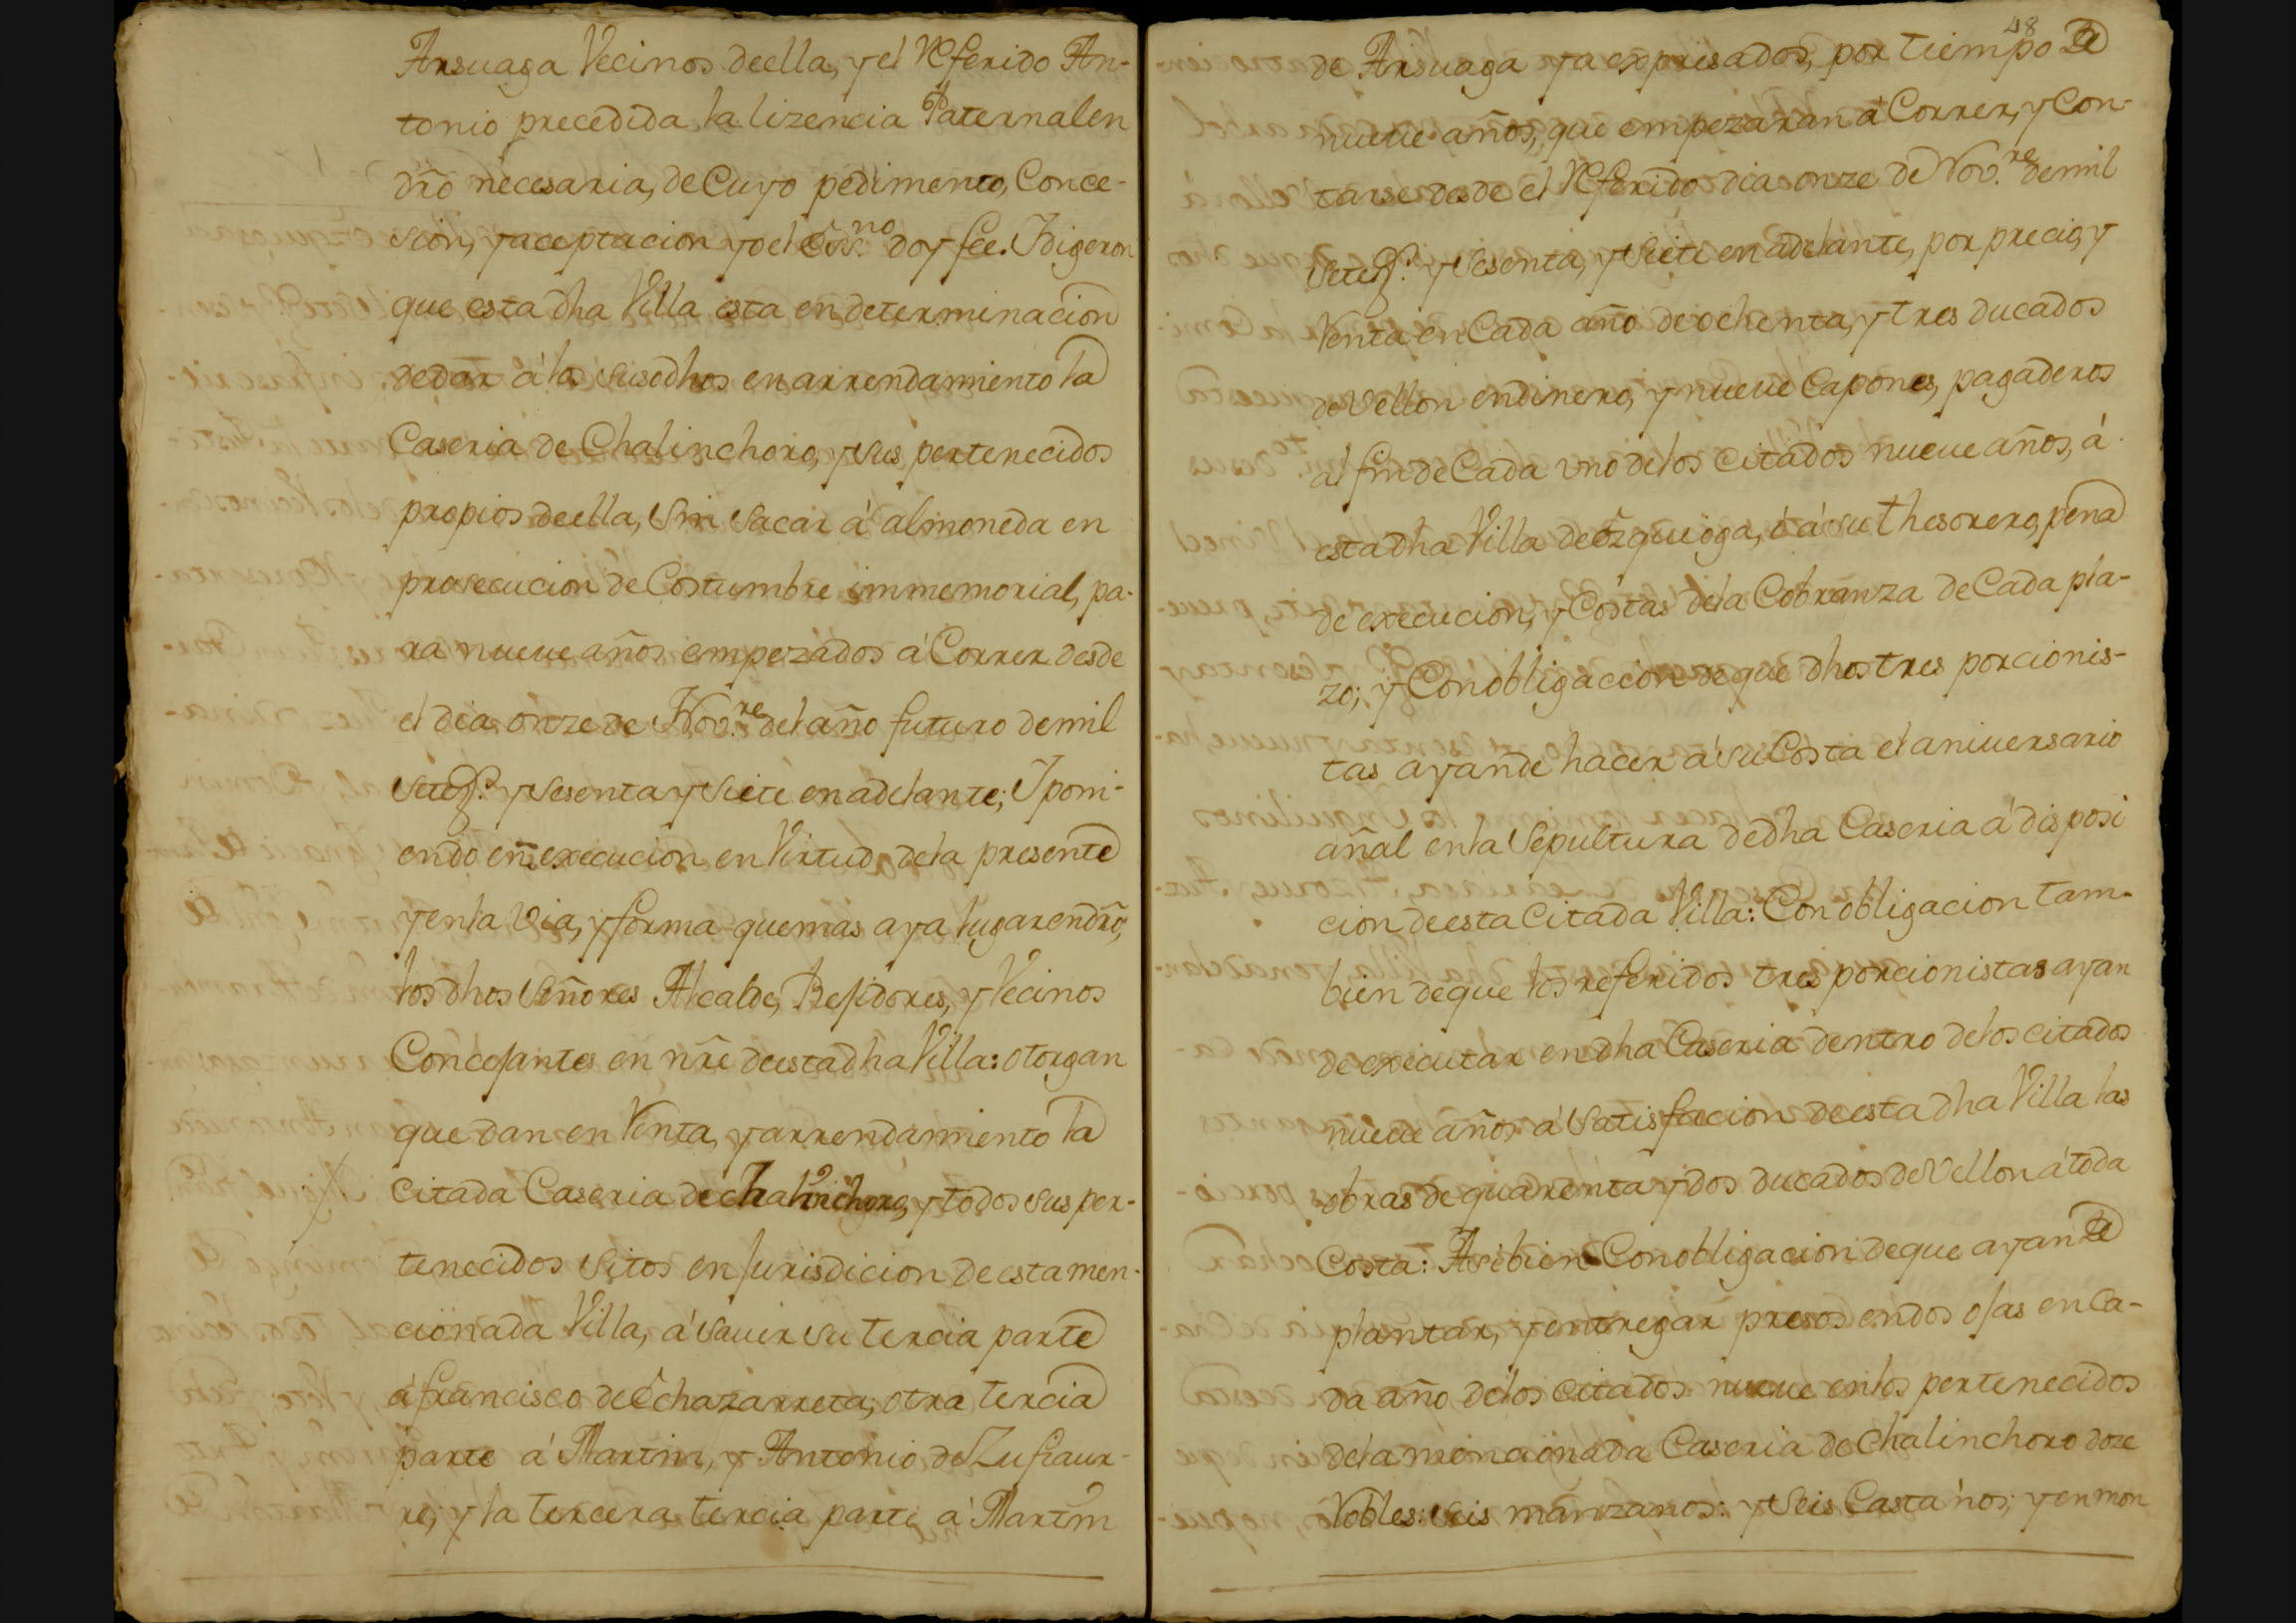 Arsuaga Vecinos deella, y el Referido An-
tonio precedida la lizencia Paternal en
dr̃o necesaria, de Cuyo pedimento, Conce-
sion, y aceptacion yo el Ess.no doy fee. Y digeron
que esta dha Villa esta en determinacion
de dar á los susodhos en arrendamiento la
Caseria de Chalinchoro, y sus pertenecidos
propios deella, sin sacar á almoneda en
prosecucion de Costumbre immemorial, pa-
ra nueue años empezados á Correr desde
el dia onze de Nov.re del año futuro de mil
setez.s y sesenta y siete en adelante; Y poni-
endo en execucion en Virtud de la presente
y en la via, y forma que mas aya lugar en dr̃o,
los dhos Señores Alcalde, Rejidores, y Vecinos
Concejantes en nr̃e de esta dha Villa: otorgan
que dan en Renta, y arrendamiento la
citada Caseria de chalinchoro, y todos sus per-
tenecidos sitos en Jurisdicion de esta men-
cionada Villa, á sauer su tercia parte
á francisco de Echazarreta; otra tercia
parte á Martin, y Antonio de Zufiaur-
re; y la tercera tercia parte á Martin
48
de Arsuaga ya expresados, por tiempo de
nueue años, que empezaran á Correr, y Con-
tarse desde el Referido dia onze de Nov.re de mil
setez.s y sesenta, y siete en adelante, por precio, y
Renta en Cada año de ochenta, y tres ducados
de vellon en dinero, y nueue Capones, pagaderos
al fin de Cada vno de los citados nueue años, á
esta dha Villa de Ezquioga, ó á su thesorero, pena
de execucion, y Costas de la Cobranza de Cada pla-
zo; y Con obligacion de que dhos tres porcionis-
tas ayan de hacer á su Costa el aniuersario
añal en la Sepultura de dha Caseria á disposi
cion de esta Citada Villa: Con obligacion tam-
bien de que los referidos tres porcionistas ayan
de executar en dha Caseria dentro de los citados
nueue años á satisfacion de esta dha Villa las
obras de quarenta y dos ducados de Vellon á toda
Costa: Asibien Con obligacion de que ayan de
plantar, y entregar presos en dos ojas en Ca-
da año de los citados nueue en los pertenecidos
de la mencionada Caseria de Chalinchoro doze
Robles: seis manzanos: y seis Castaños; y en mon